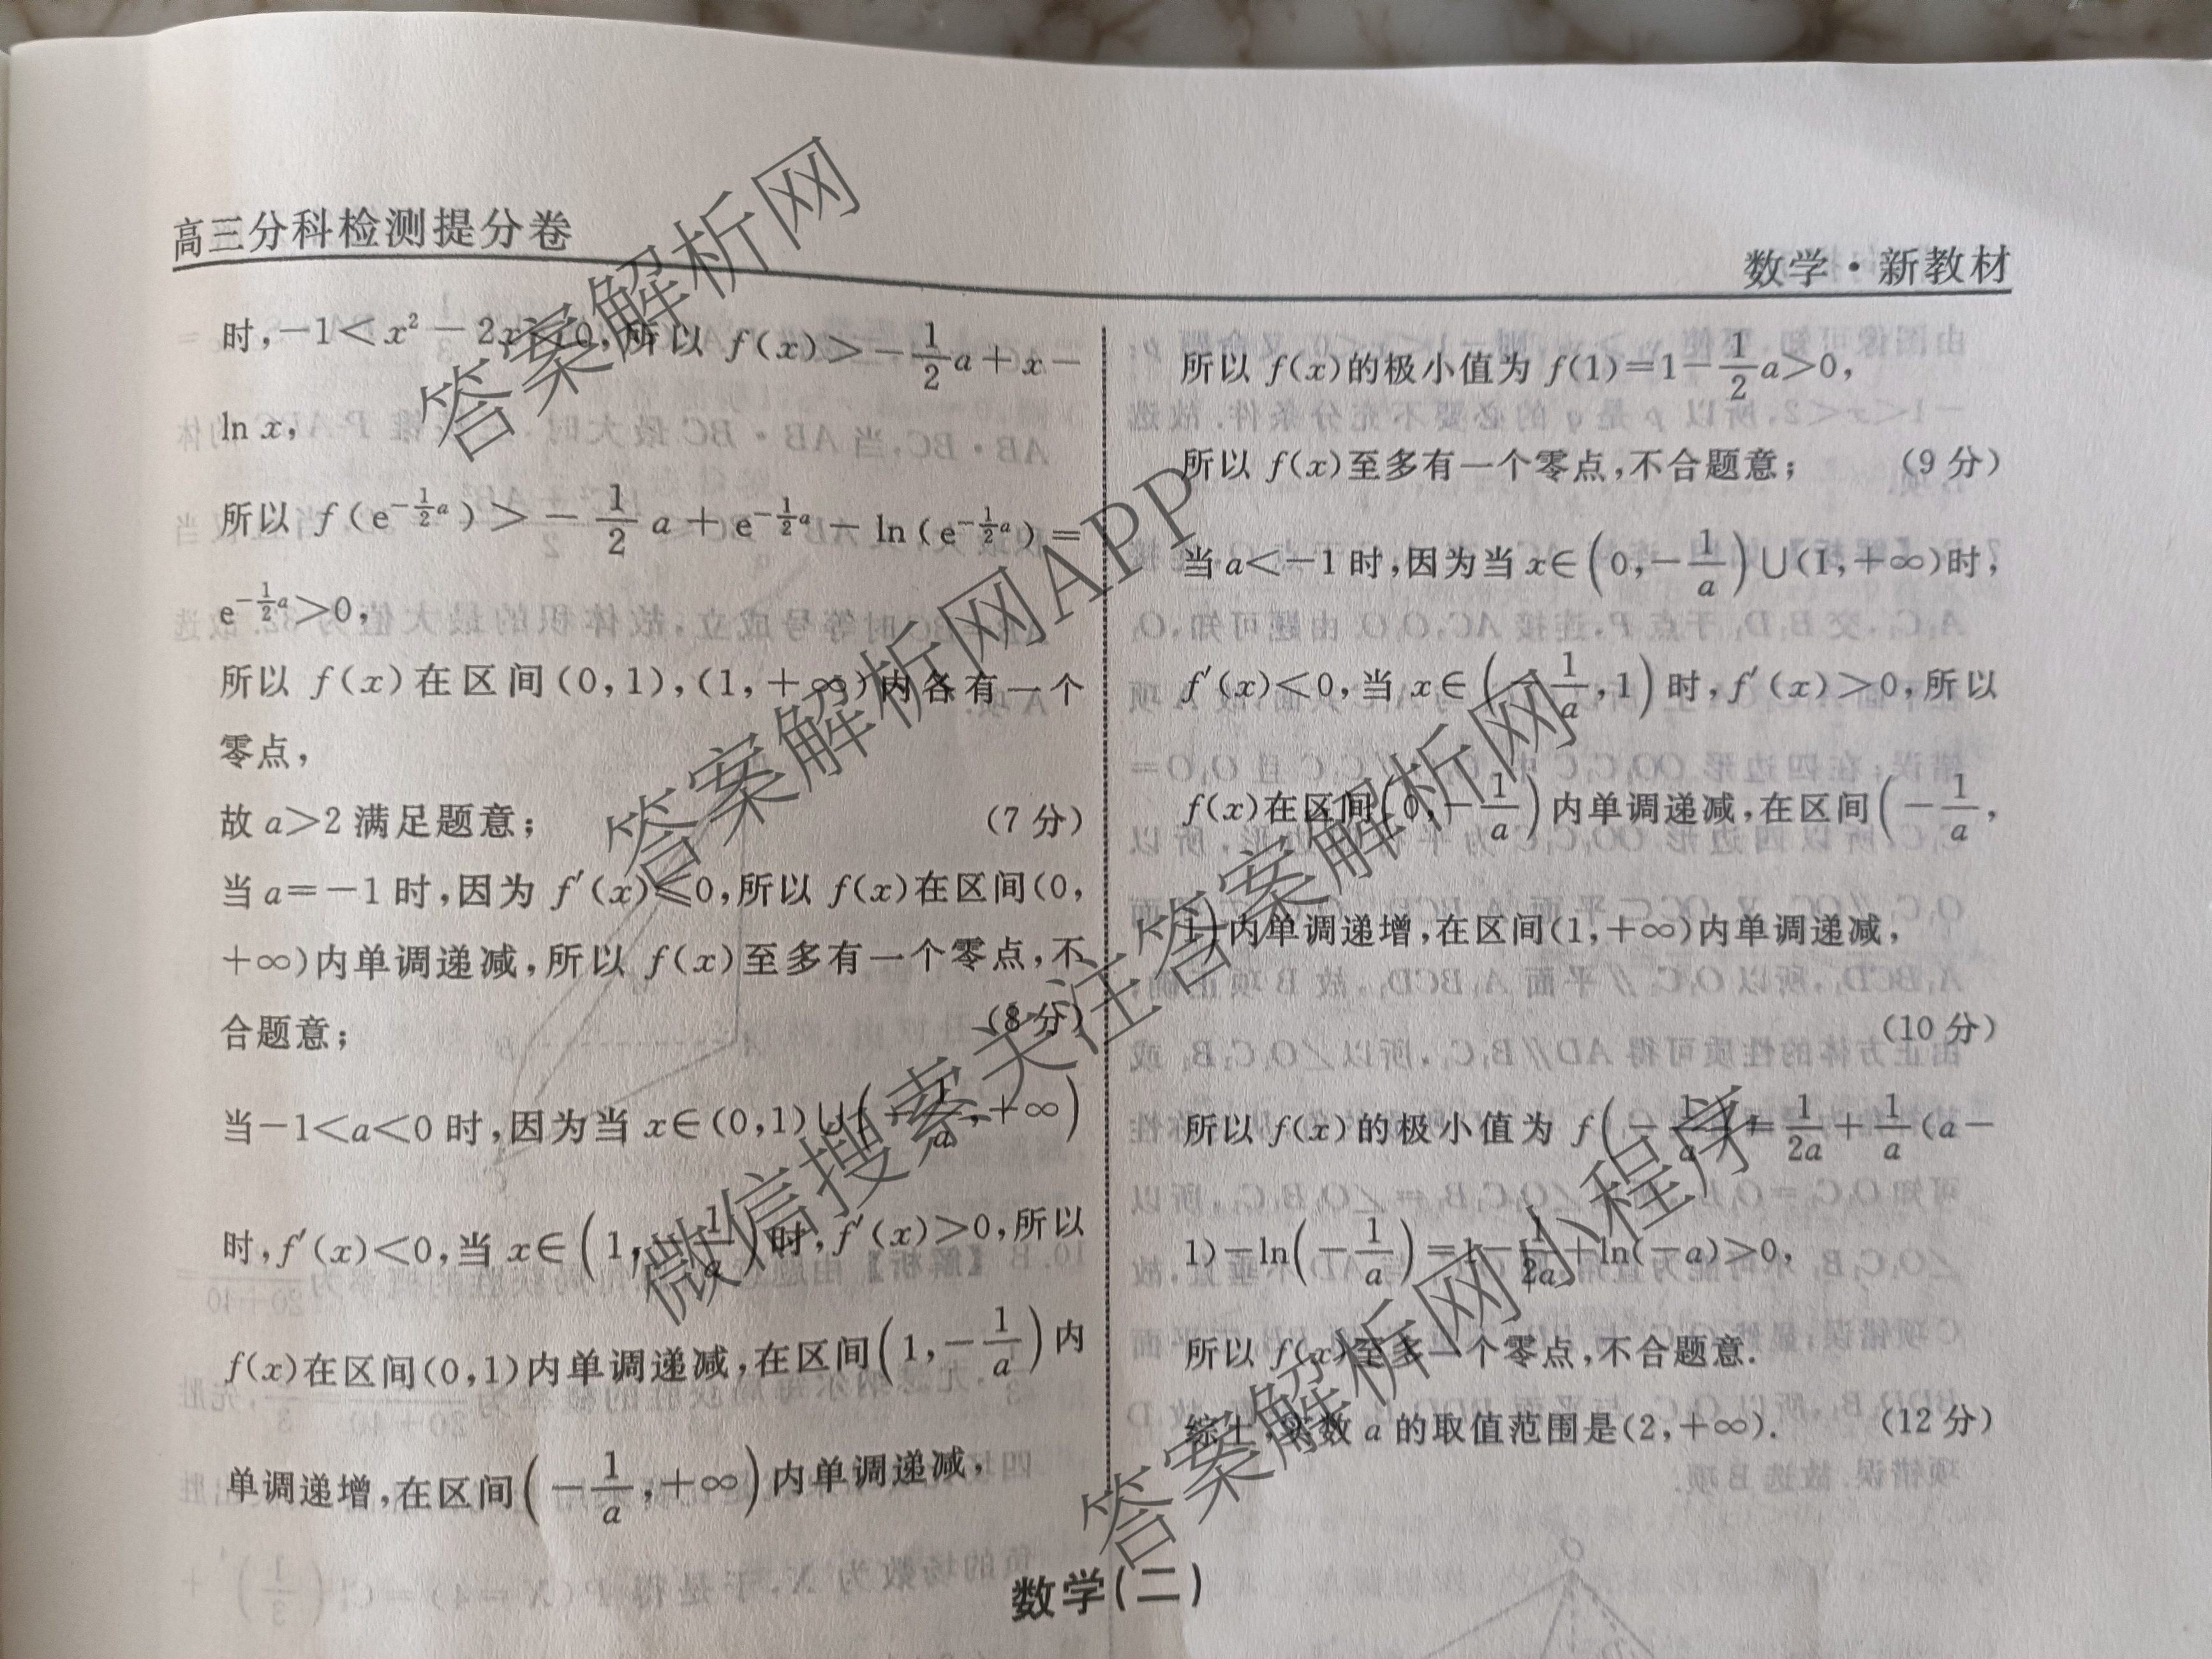 高三分科检测提分卷
数学·新教材
时,-1<x²-2x<0,所以 f(x)>-1/2a+x-
ln x,
所以 f(e^{-1/2a})>-1/2a+e^{-1/2a}-ln(e^{-1/2a})=
e^{-1/2a}>0,
所以 f(x)在区间(0,1),(1,+∞)内各有一个
零点,
故 a>2 满足题意; (7 分)
当 a=-1 时,因为 f′(x)≤0,所以 f(x)在区间(0,
+∞)内单调递减,所以 f(x)至多有一个零点,不
合题意; (8 分)
当-1<a<0 时,因为当 x∈(0,1)∪(-1/a,+∞)
时,f′(x)<0,当 x∈(1,-1/a)时,f′(x)>0,所以
f(x)在区间(0,1)内单调递减,在区间(1,-1/a)内
单调递增,在区间(-1/a,+∞)内单调递减,
所以 f(x)的极小值为 f(1)=1-1/2a>0,
所以 f(x)至多有一个零点,不合题意; (9 分)
当 a<-1 时,因为当 x∈(0,-1/a)∪(1,+∞)时,
f′(x)<0,当 x∈(-1/a,1)时,f′(x)>0,所以
f(x)在区间(0,-1/a)内单调递减,在区间(-1/a,
1)内单调递增,在区间(1,+∞)内单调递减,
(10 分)
所以 f(x)的极小值为 f(-1/a)=1/2a+1/a(a-
1)-ln(-1/a)=1-1/2a+ln(-a)>0,
所以 f(x)至多一个零点,不合题意.
综上,实数 a 的取值范围是(2,+∞). (12 分)
数学(二)
答案解析网
答案解析网APP
微信搜索关注答案解析网
答案解析网小程序